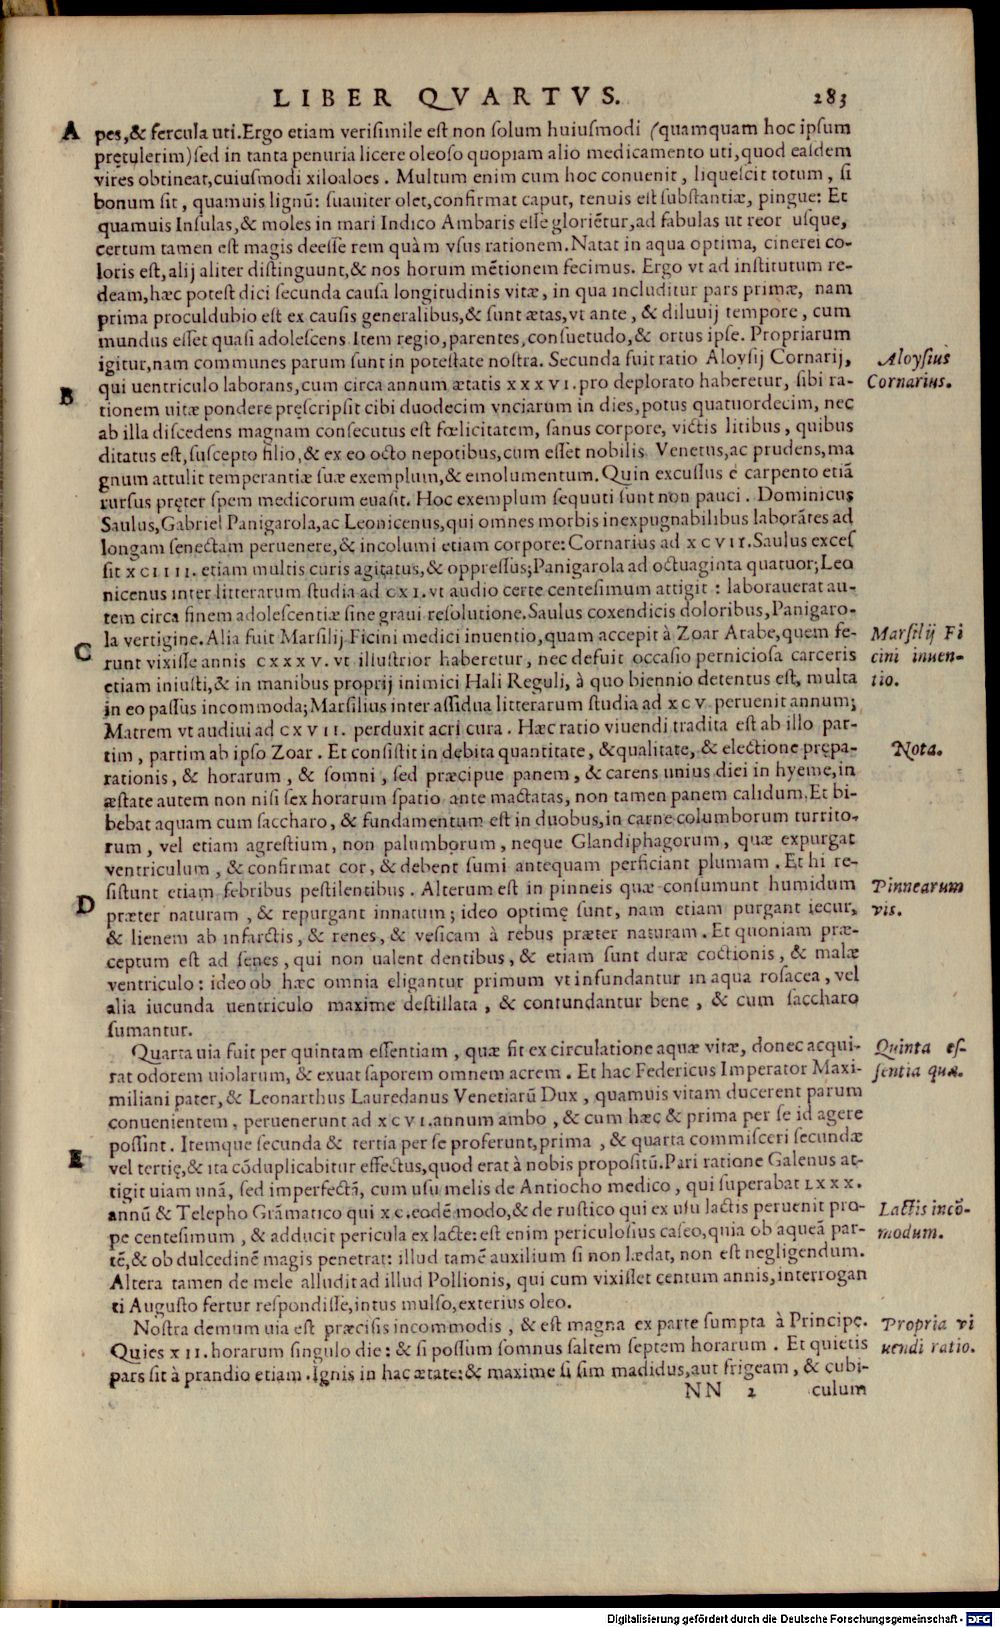 LIBER QVARTVS. 283
A pes,& fercula uti.Ergo etiam verisimile est non solum huiusmodi (quamquam hoc ipsum
prętulerim)sed in tanta penuria licere oleoso quopiam alio medicamento uti,quod easdem
vires obtineat,cuiusmodi xiloaloes. Multum enim cum hoc conuenit, liquescit totum, si
bonum sit, quamuis lignũ: suauiter olet,confirmat caput, tenuis est substantiæ, pingue: Et
quamuis Insulas,& moles in mari Indico Ambaris esse gloriẽtur,ad fabulas ut reor usque,
certum tamen est magis deesse rem quàm vsus rationem.Natat in aqua optima, cinerei co-
loris est,alij aliter distinguunt,& nos horum mẽtionem fecimus. Ergo vt ad institutum re-
deam,hæc potest dici secunda causa longitudinis vitæ, in qua includitur pars primæ, nam
prima proculdubio est ex causis generalibus,& sunt ætas,vt ante, & diluuij tempore, cum
mundus esset quasi adolescens Item regio,parentes,consuetudo,& ortus ipse. Propriarum
igitur,nam communes parum sunt in potestate nostra. Secunda fuit ratio Aloysij Cornarij, Aloysius
qui uentriculo laborans,cum circa annum ætatis XXXVI.pro deplorato haberetur, sibi ra- Cornarius.
B tionem uitæ pondere pręscripsit cibi duodecim vnciarum in dies,potus quatuordecim, nec
ab illa discedens magnam consecutus est fœlicitatem, sanus corpore, victis litibus, quibus
ditatus est,suscepto filio,& ex eo octo nepotibus,cum esset nobilis Venetus,ac prudens,ma
gnum attulit temperantiæ suæ exemplum,& emolumentum.Quin excussus e carpento etiã
rursus pręter spem medicorum euasit. Hoc exemplum sequuti sunt non pauci. Dominicus
Saulus,Gabriel Panigarola,ac Leonicenus,qui omnes morbis inexpugnabilibus laborãtes ad
longam senectam peruenere,& incolumi etiam corpore:Cornarius ad XCVII.Saulus exces
sit XCIIII. etiam multis curis agitatus,& oppressus;Panigarola ad octuaginta quatuor;Leo
nicenus inter litterarum studia ad CXI.vt audio certe centesimum attigit: laborauerat au-
tem circa finem adolescentiæ sine graui resolutione.Saulus coxendicis doloribus,Panigaro-
la vertigine.Alia fuit Marsilij Ficini medici inuentio,quam accepit à Zoar Arabe,quem fe- Marsilij Fi
C runt vixisse annis CXXXV.vt illustrior haberetur, nec defuit occasio perniciosa carceris cini inuen-
etiam iniusti,& in manibus proprij inimici Hali Reguli, à quo biennio detentus est, multa tio.
in eo passus incommoda;Marsilius inter assidua litterarum studia ad XCV peruenit annum;
Matrem vt audiui ad CXVII. perduxit acri cura. Hæc ratio viuendi tradita est ab illo par-
tim, partim ab ipso Zoar. Et consistit in debita quantitate, &qualitate, & electione prępa- Nota.
rationis, & horarum, & somni, sed præcipue panem, & carens unius diei in hyeme,in
æstate autem non nisi sex horarum spatio ante mactatas, non tamen panem calidum.Et bi-
bebat aquam cum saccharo, & fundamentum est in duobus,in carne columborum turrito-
rum, vel etiam agrestium, non palumborum, neque Glandiphagorum, quæ expurgat
ventriculum, & confirmat cor, & debent sumi antequam perficiant plumam. Et hi re-
sistunt etiam febribus pestilentibus. Alterum est in pinneis quæ consumunt humidum Pinnearum
D præter naturam, & repurgant innatum; ideo optimę sunt, nam etiam purgant iecur, vis.
& lienem ab infarctis, & renes, & vesicam à rebus præter naturam. Et quoniam præ-
ceptum est ad senes, qui non ualent dentibus, & etiam sunt duræ coctionis, & malæ
ventriculo: ideo ob hæc omnia eligantur primum vt infundantur in aqua rosacea, vel
alia iucunda uentriculo maxime destillata, & contundantur bene, & cum saccharo
sumantur.
Quarta uia fuit per quintam essentiam, quæ fit ex circulatione aquæ vitæ, donec acqui- Quinta es-
rat odorem uiolarum, & exuat saporem omnem acrem. Et hac Federicus Imperator Maxi- sentia quæ.
miliani pater,& Leonarthus Lauredanus Venetiarũ Dux, quamuis vitam ducerent parum
conuenientem, peruenerunt ad XCVI.annum ambo, & cum hæc & prima per se id agere
possint. Itemque secunda & tertia per se proferunt,prima, & quarta commisceri secundæ
E vel tertię,& ita cõduplicabitur effectus,quod erat à nobis propositũ.Pari ratione Galenus at-
tigit uiam unã, sed imperfectã, cum usu melis de Antiocho medico, qui superabat LXXX.
annũ & Telepho Grãmatico qui XC.eodẽ modo,& de rustico qui ex usu lactis peruenit pro- Lactis incõ-
pe centesimum, & adducit pericula ex lacte:est enim periculosius caseo,quia ob aqueã par- modum.
tẽ,& ob dulcedinẽ magis penetrat: illud tamẽ auxilium si non lædat, non est negligendum.
Altera tamen de mele alludit ad illud Pollionis, qui cum vixisset centum annis,interrogan
ti Augusto fertur respondisse,intus mulso,exterius oleo.
Nostra demum uia est præcisis incommodis, & est magna ex parte sumpta à Principę. Propria vi
Quies XII.horarum singulo die: & si possum somnus saltem septem horarum. Et quietis uendi ratio.
pars sit à prandio etiam.Ignis in hac ætate:& maxime si sim madidus,aut frigeam, & cubi-
NN 2 culum
Digitalisierung gefördert durch die Deutsche Forschungsgemeinschaft - DFG